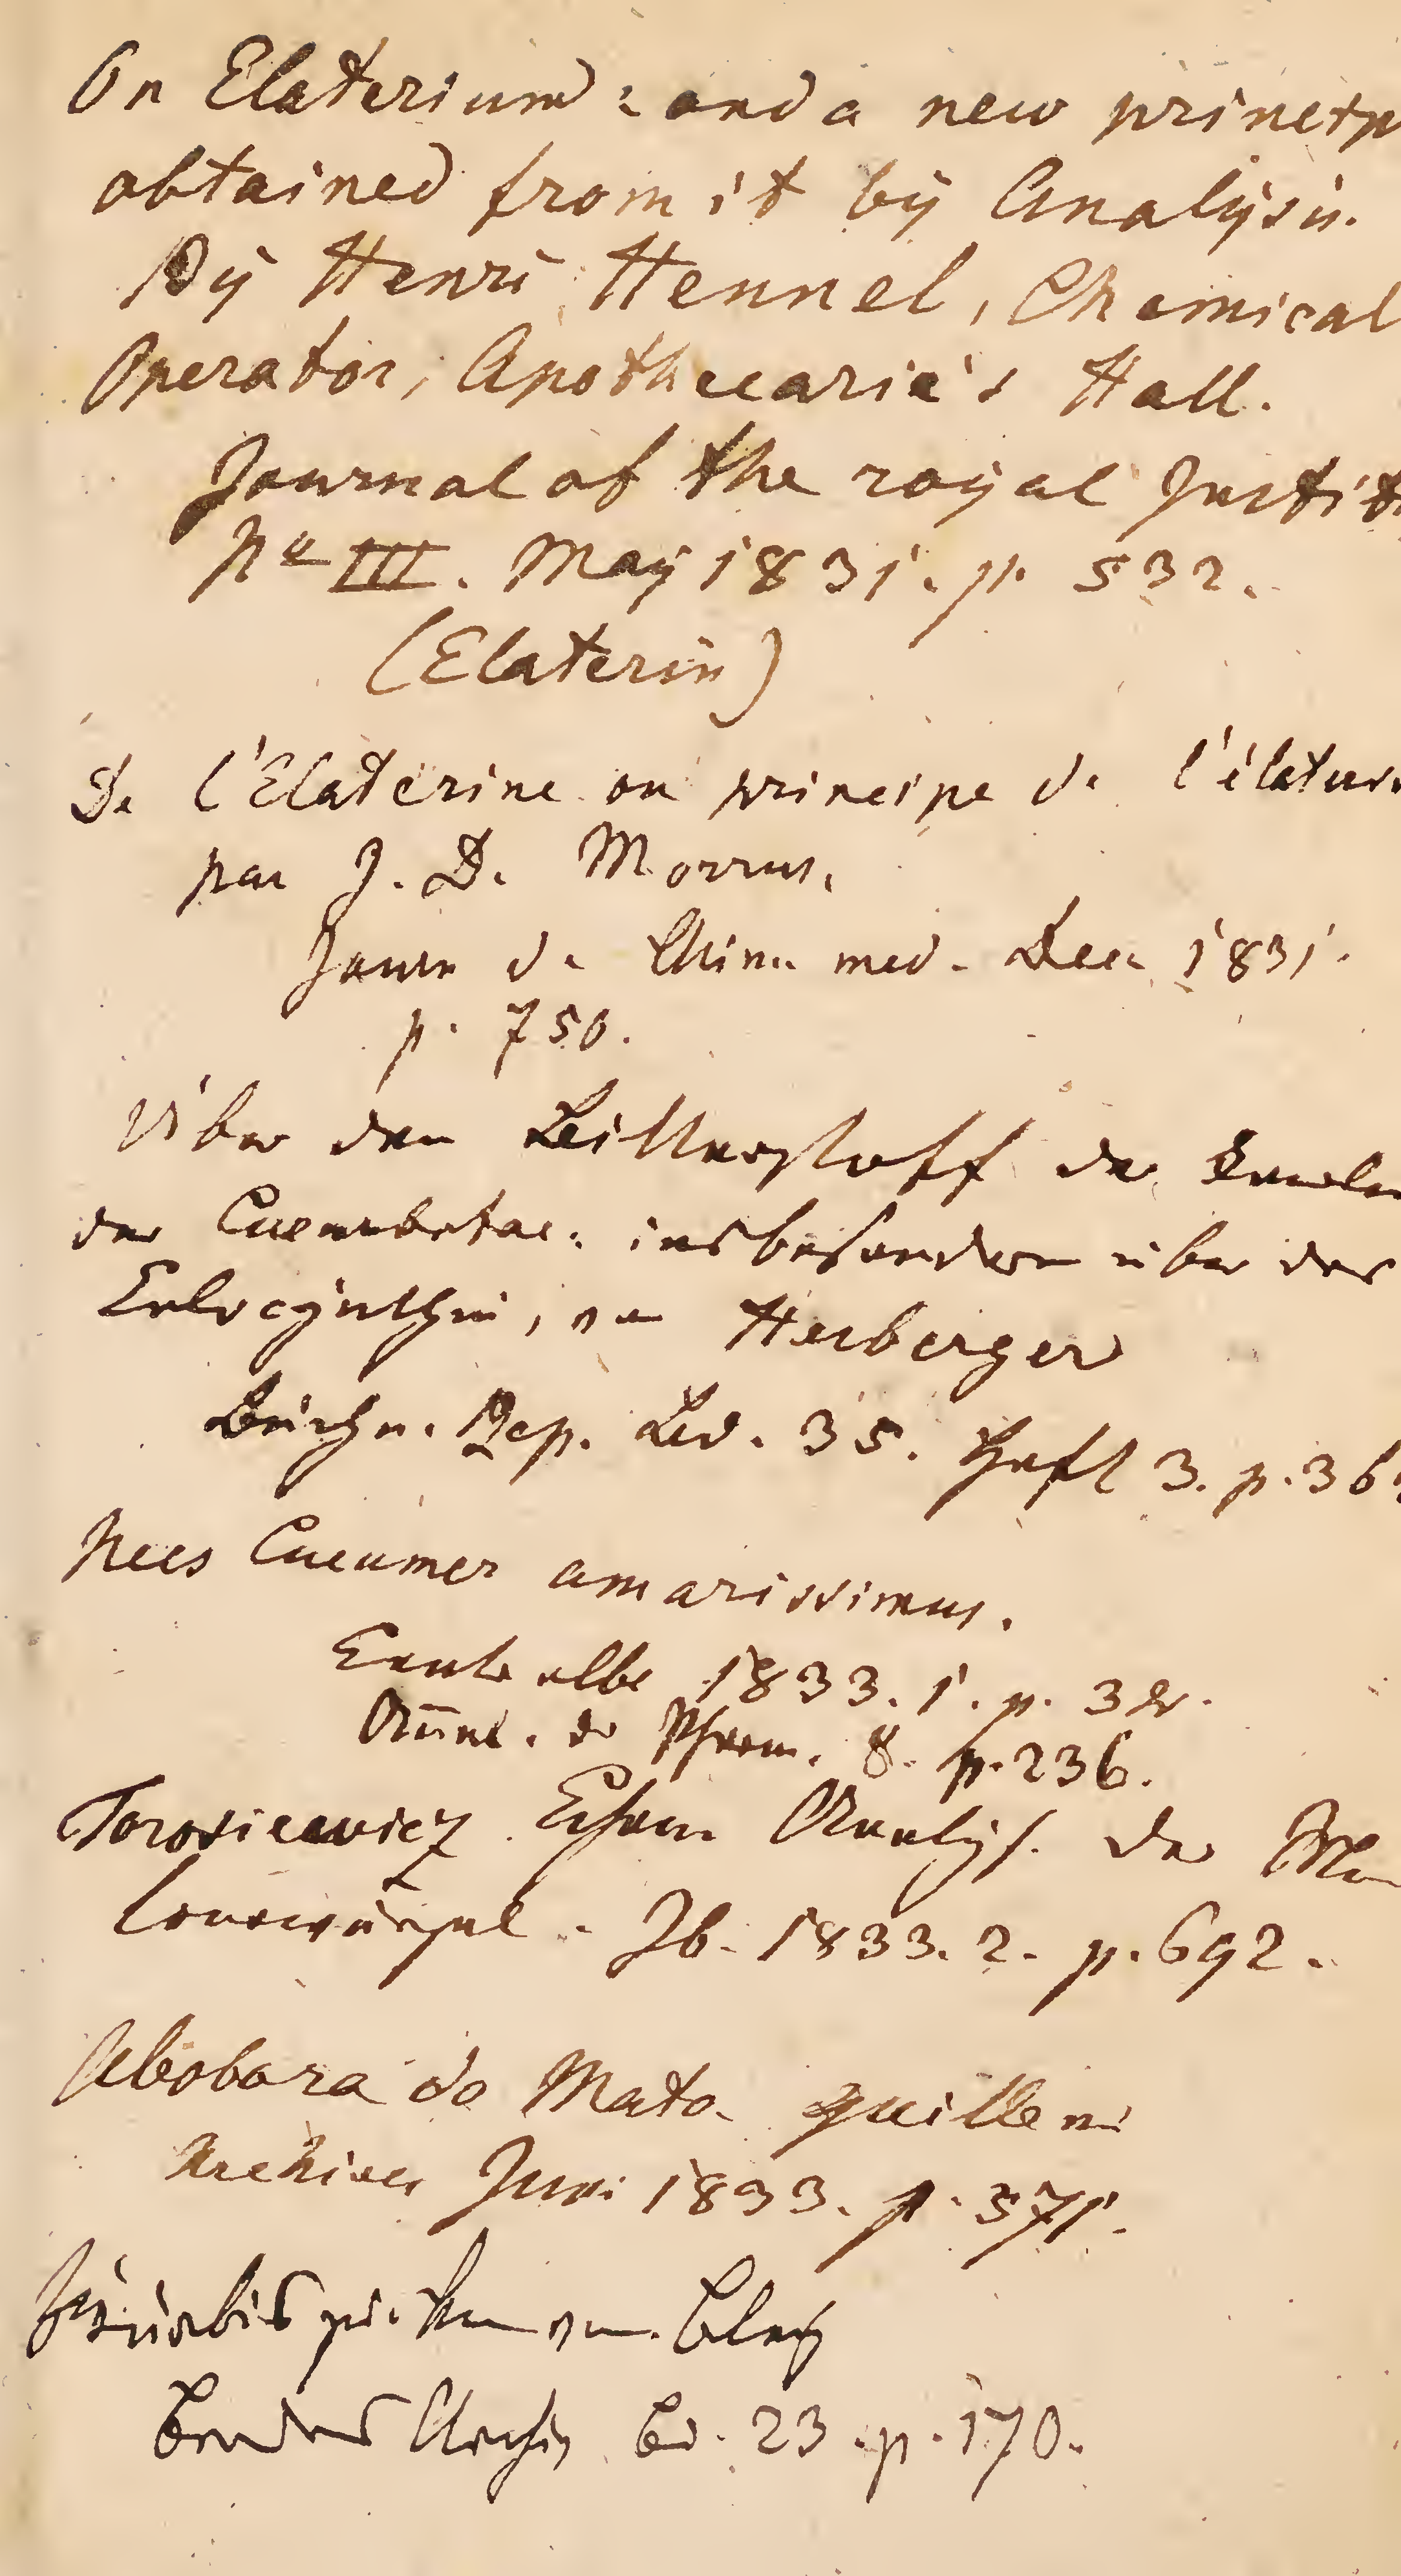 On Elaterium: and a new princip
obtained from it by Analysis.
By Henri Hennel, Chemical
Operator, Apothecarie's Hall.
Journal of the royal Instit
No III. May 1831. p. 532.
(Elaterin)
De l'Elaterine ou principe de l'élater
par J. D. Morrus.
Journ de Chim. med. Dec. 1831.
p. 750.
Über den Bitterstoff der
der Cucurbitac. insbesondere über das
Colocynthin, von Herberger
Buchn. Rep. Bd. 35. Heft 3. p. 36
Nees Cucumer amarissimus.
Centralbl 1833. 1. p. 38.
Annal. der Pharm. 8. p. 236.
Torosiewicz Chem Analys. der
Ib. 1833. 2. p. 692.
Abobora do Mato
Archiv Juni 1833. p. 371.
Kürbis von
Brandes Archiv Bd. 23 p. 170.